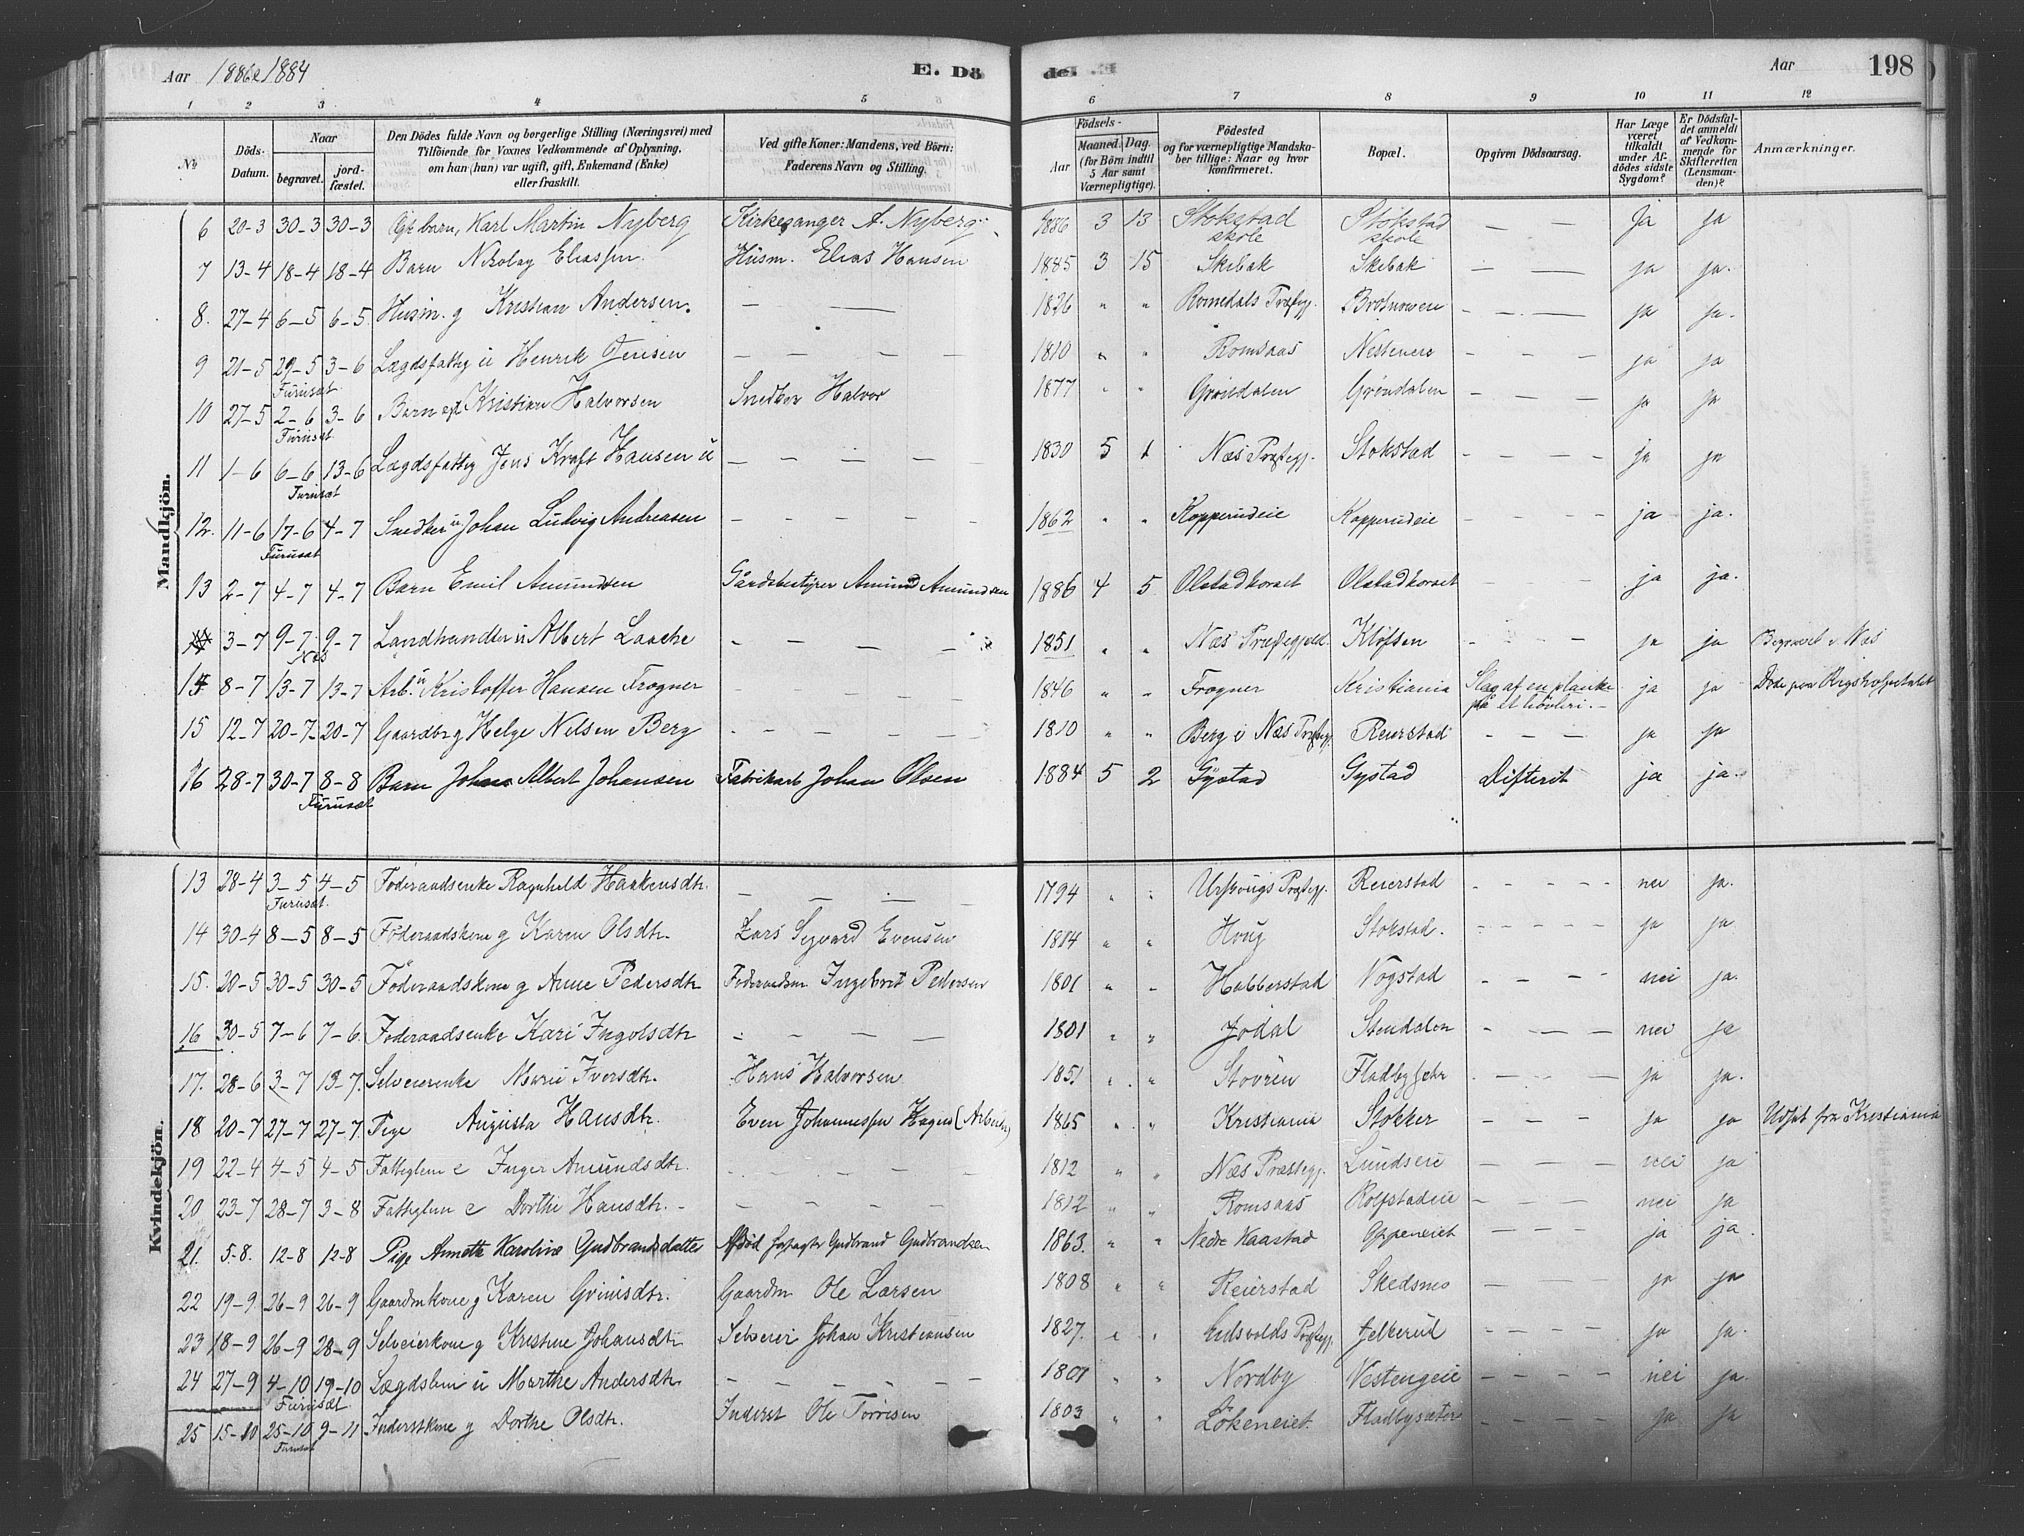 Aar 1886 1884 E. Dö
de. E. Aar 198
1 2 3 4 5 6 7 8 9 10 11 12
No
Döds-Datum.
Naar
begravet. jordfæstet.
Den Dödes fulde Navn og borgerlige Stilling (Næringsvei) med
Tilföiende for Voxnes Vedkommende af Oplysning,
om han (hun) var ugift, gift, Enkemand (Enke)
eller fraskilt.
Ved gifte Koner: Mandens, ved Börn:
Faderens Navn og Stilling.
Födsels-
Aar Maaned. Dag.
(for Börn indtil
5 Aar samt
Værnepligtige).
Födested
og for værnepligtige Mandska-
ber tillige: Naar og hvor
konfirmeret.
Bopæl.
Opgiven Dödsaarsag.
Har Læge
været
tilkaldt
under Af-
dödes sidste
Sygdom?
Er Dödsfal-
det anmeldt
af Vedkom-
mende for
Skifteretten
(Lensman-
den)?
Anmærkninger.
Mandkjön.
6 20-3 30-3 30-3 Ægte barn, Karl Martin Nyberg Kirkesanger A. Nyberg 1886 3 13 Stokstad skole Stokstad skole — — Ja ja
7 13-4 18-4 18-4 Barn Nikolay Eliassen Husm. Elias Hansen 1885 3 15 Skebak Skebak — — ja ja.
8. 27-4 6-5 6-5 Husm. g Kristian Andersen. — — 1826 " " Romedals Præstegj. — — ja ja.
9 21-5 29-5 3-6 Lægdsfattig u Henrik Jensen — — — — 1810 " " Romsaas Nestenere — — — ja ja
Furuset
10 27-5 2-6 3-6 Barn Kristian Halvorsen Snedker Halvor 1877 " " Gröndalen Gröndalen — — — ja ja
Furuset
11 1-6 6-6 13-6 Lægdsfattig Jens Kraft Hansen u — — — — 1830 5 1 Næs Præstegj. Stokstad — — — ja ja
Furusæt
12. 11-6 17-6 4-7 Snedker u Johan Ludvig Andreasen — — — — 1862 " " Kopperudeie Kopperudeie — — — — ja ja.
Furusæt
13 2-7 4-7 4-7 Barn Emil Amundsen Gårdsbestyrer Amund Amundsen 1886 4 5 Olstadkorset Olstadkorset — — — ja ja.
3-7 9-7 9-7 Landhandler u Albert Laache — — — — 1851 " " Næs Præstegjeld Klöften — — — ja ja Begravet i Næs
Næs
14 8-7 13-7 13-7 Arb. u Kristoffer Hansen Frogner — — — — 1846 " " Frogner Kristiania Slag af en planke på et hövleri. — ja ja Döde paa Rigshospitalet
15 12-7 20-7 20-7 Gaardbr g Helge Nelsen Berg — — — — 1810 " " Berg i Næs Præstegj. Reierstad — — — ja ja
16 28-7 30-7 8-8 Barn Johan Albert Johansen Fabrikarb Johan Olsen 1884 5 2 Gystad Gystad Difterit ja ja.
Furusæt
Kvindekjön.
13 28-4 3-5 4-5 Föderaadsenke Ragnhild Haakensdtr. — — — — 1794 " " Urskougs Præstegj. Reierstad — — — — nei ja.
Furusæt.
14 30-4 8-5 8-5 Föderaadskone g Karen Olsdtr. Lars Sigvard Evensen 1814 " " Houg Stokstad. — — — — ja ja
15. 20-5 30-5 30-5 Föderaadskone g Anne Pedersdtr Föderaadsm Ingebret Pedersen 1801 " " Habberstad Nogstad — — — nei ja.
16 30-5 7-6 7-6 Föderaadsenke Kari Ingolsdtr — — — — 1801 " " Jödal Stendalen — — — nei ja
17. 28-6 3-7 13-7 Selveierenke Marie Iversdtr. Hans Halvorsen 1851 " " Fladby — — — ja ja.
18 20-7 27-7 27-7 Pige Augusta Hansdtr. Even Johannessen Hagen (Arbeider) 1865 " " Kristiania Stokker — — — ja ja Udsat fra Kristiania
19 22-4 4-5 4-5 Fattiglem e Inger Amundsdtr. — — — — 1812 " " Næs Præstegj. Lundseie — — — nei ja
20 23-7 28-7 3-8 Fattiglem e Dorthe Hansdtr. — — — — 1812 " " Romsaas Rolfstadeie — — — nei ja
21. 5-8. 12-8 12-8 Pige Annette Karoline Gudbrandsdatter Afdöd Gudbrand Gudbrandsen 1863. " " Nedre Kaastad Oppeneiet — — — ja ja.
22 19-9 26-9 26-9 Gaardmkone g Karen Gvinisdtr. Gaardm Ole Larsen 1808 " " Reierstad Skedsmo — — — ja ja
23 18-9 26-9 28-9 Selveierkone g Kristine Johansdtr Selveier Johan Kristiansen 1827. " " Eidsvolds Præstegj. Jelkerud — — — — ja ja.
24 27-9 4-10 19-10 Lægdslem u Marthe Andersdtr. — — — — 1801 " " Nordby Vestengeie — — — — nei ja.
Furusæt
25 15-10 25-10 9-11 Inderstkone g Dorthe Olsdtr. Inderst Ole Torrisen 1803 " " Lökeneiet. Fladbysæter — — — — ja ja
Furusæt